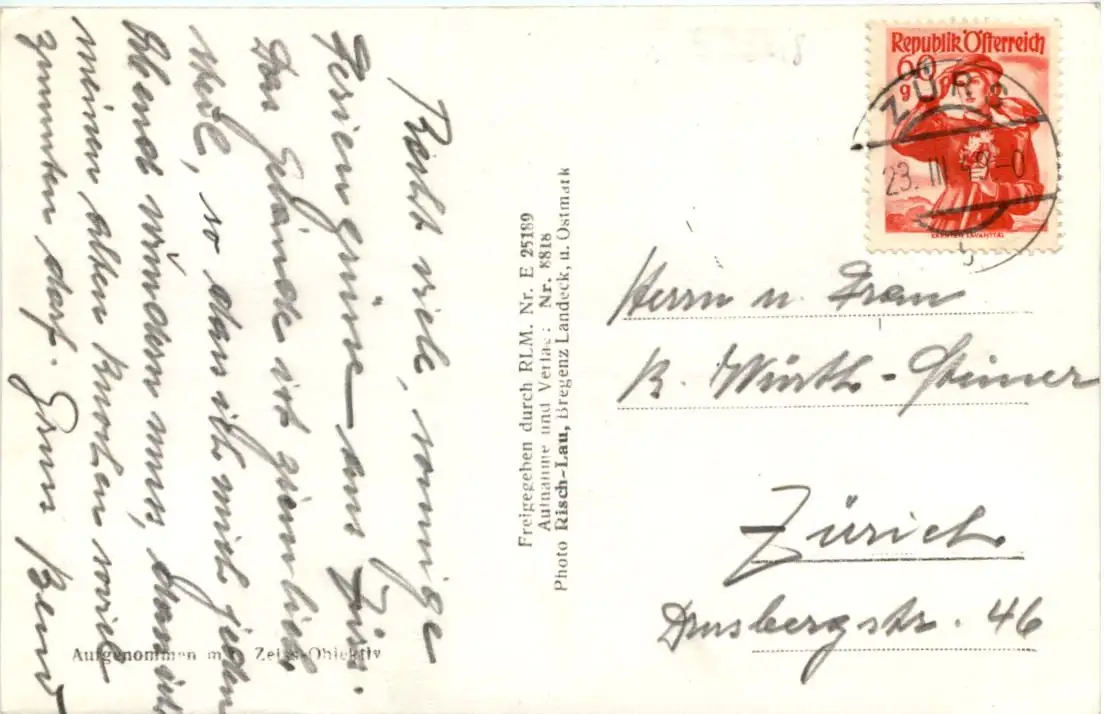 Recht viele, sonnige
Feriengrüsse aus Zürs.
Das Gelände ist ziemlich
steil, so dass ich mich jeden
Abend wundern muss, dass ich
meinen alten Knochen soviel
zumuten darf. Gruss
Freigegeben durch RLM. Nr. E 25189
Aufnahme und Verlag: Nr. 8818
Photo Risch-Lau, Bregenz Landeck, u. Ostmark
Aufgenommen mit Zeiss-Objektiv
Republik Österreich
60
g
KÄRNTEN LAVANTTAL
ZÜRS
23. III 49-0
b
Herrn u. Frau
R. Würth-Steiner
Zürich
Drusbergstr. 46